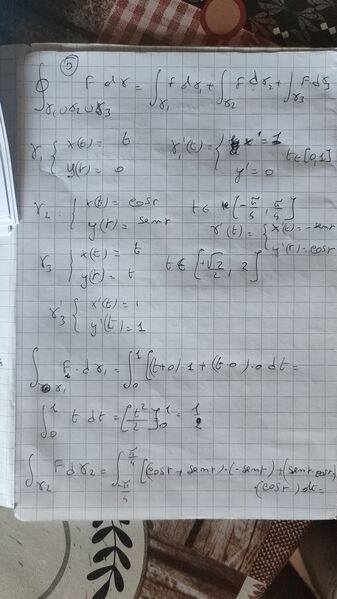 ⑤
∮_{γ1∪γ2∪γ3} F dγ = ∫_{γ1} F dγ1 + ∫_{γ2} F dγ2 + ∫_{γ3} F dγ3
γ1 { x(t) = t
y(t) = 0
γ1'(t) = { x' = 1
y' = 0
t∈[0,1]
γ2 : { x(t) = cost
y(t) = sent
t∈ [-π/4, π/4]
γ'(t) = { x'(t) = -sent
y'(t) = cost
γ3 { x(t) = t
y(t) = t
t∈ [+√2/2, 2]
γ3' { x'(t) = 1
y'(t) = 1
∫_{γ1} F · dγ1 = ∫_0^1 [(t+0)·1 + (t-0)·0 dt =
∫_0^1 t dt = [t²/2]_0^1 = 1/2
∫_{γ2} F dγ2 = ∫_{-π/4}^{π/4} [(cost + sent)·(-sent) + (sent cost)
(cost) dt =